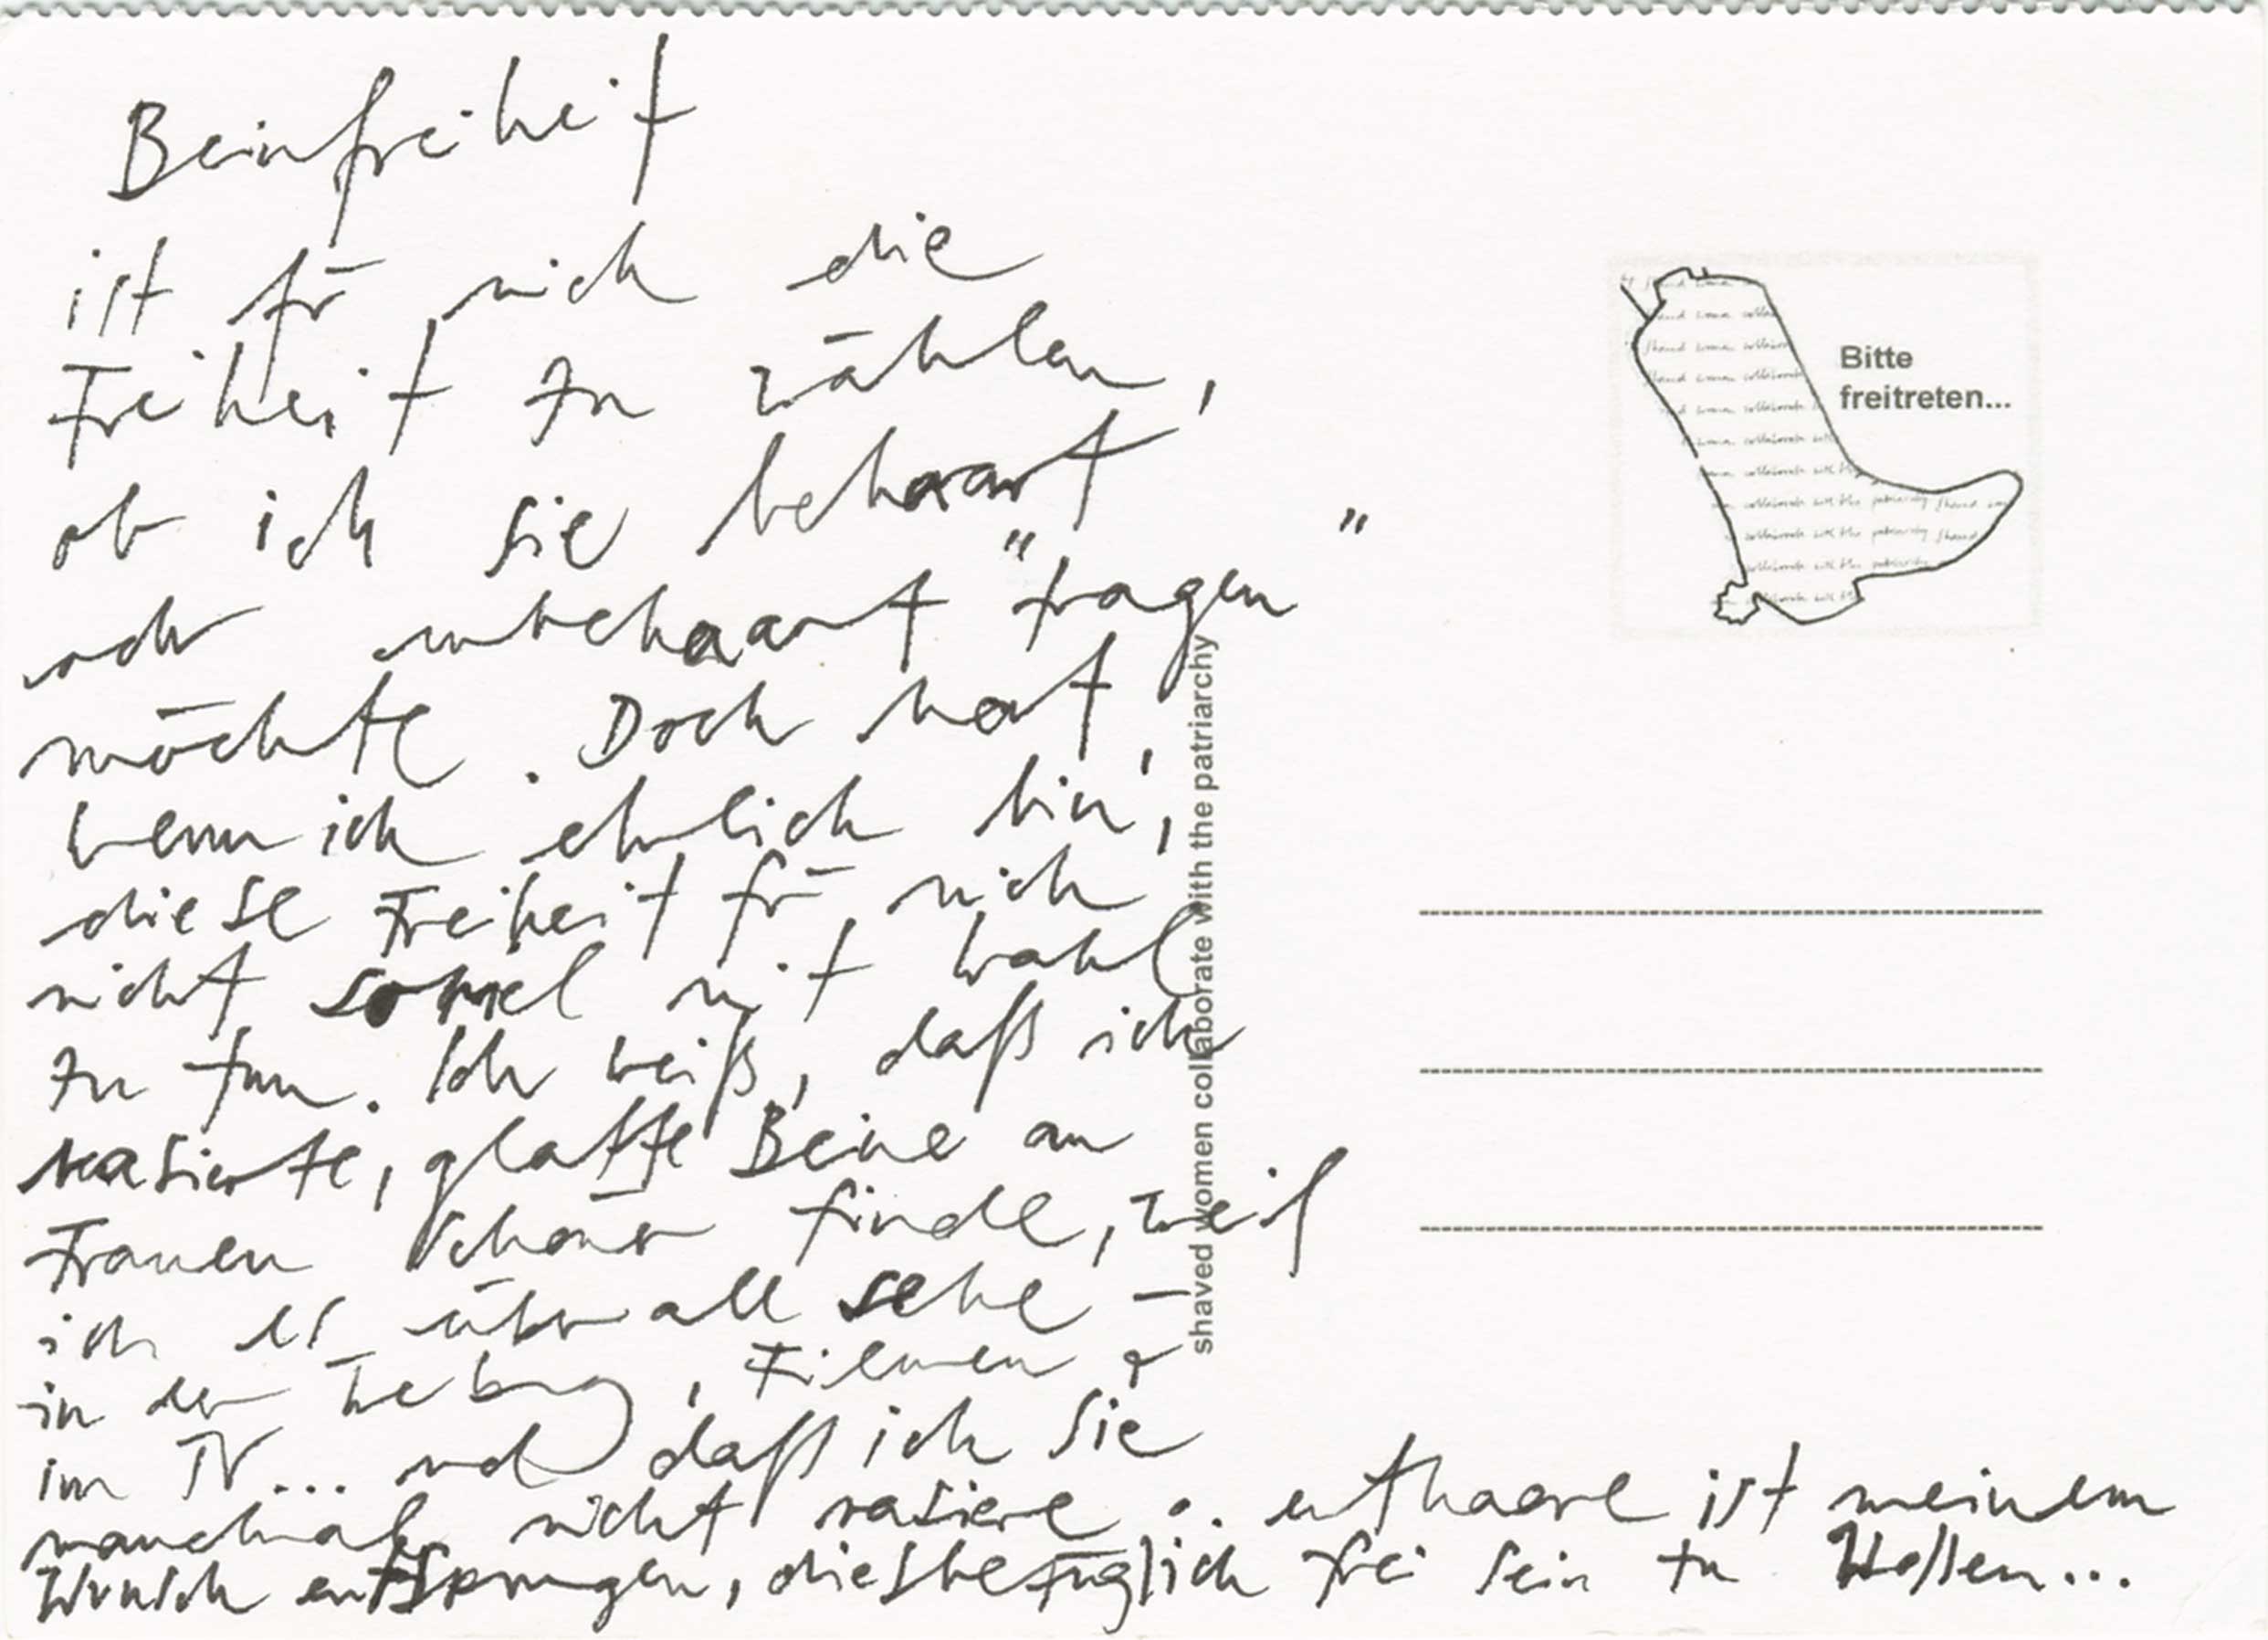 Beinfreiheit
ist für mich die
Freiheit zu wählen,
ob ich sie behaart
oder unbehaart "tragen"
möchte. Doch hat,
wenn ich ehrlich bin,
diese Freiheit für mich
nicht soviel mit Wahl
zu tun. Ich weiß, daß ich
rasierte, glatte Beine an
Frauen schöner finde, weil
ich es überall sehe –
in der Werbung, Filmen &
im TV... und daß ich sie
manchmal nicht rasiere o. enthaare ist meinem
Wunsch entsprungen, diesbezüglich frei sein zu wollen...
shaved women collaborate with the patriarchy
Bitte
freitreten...